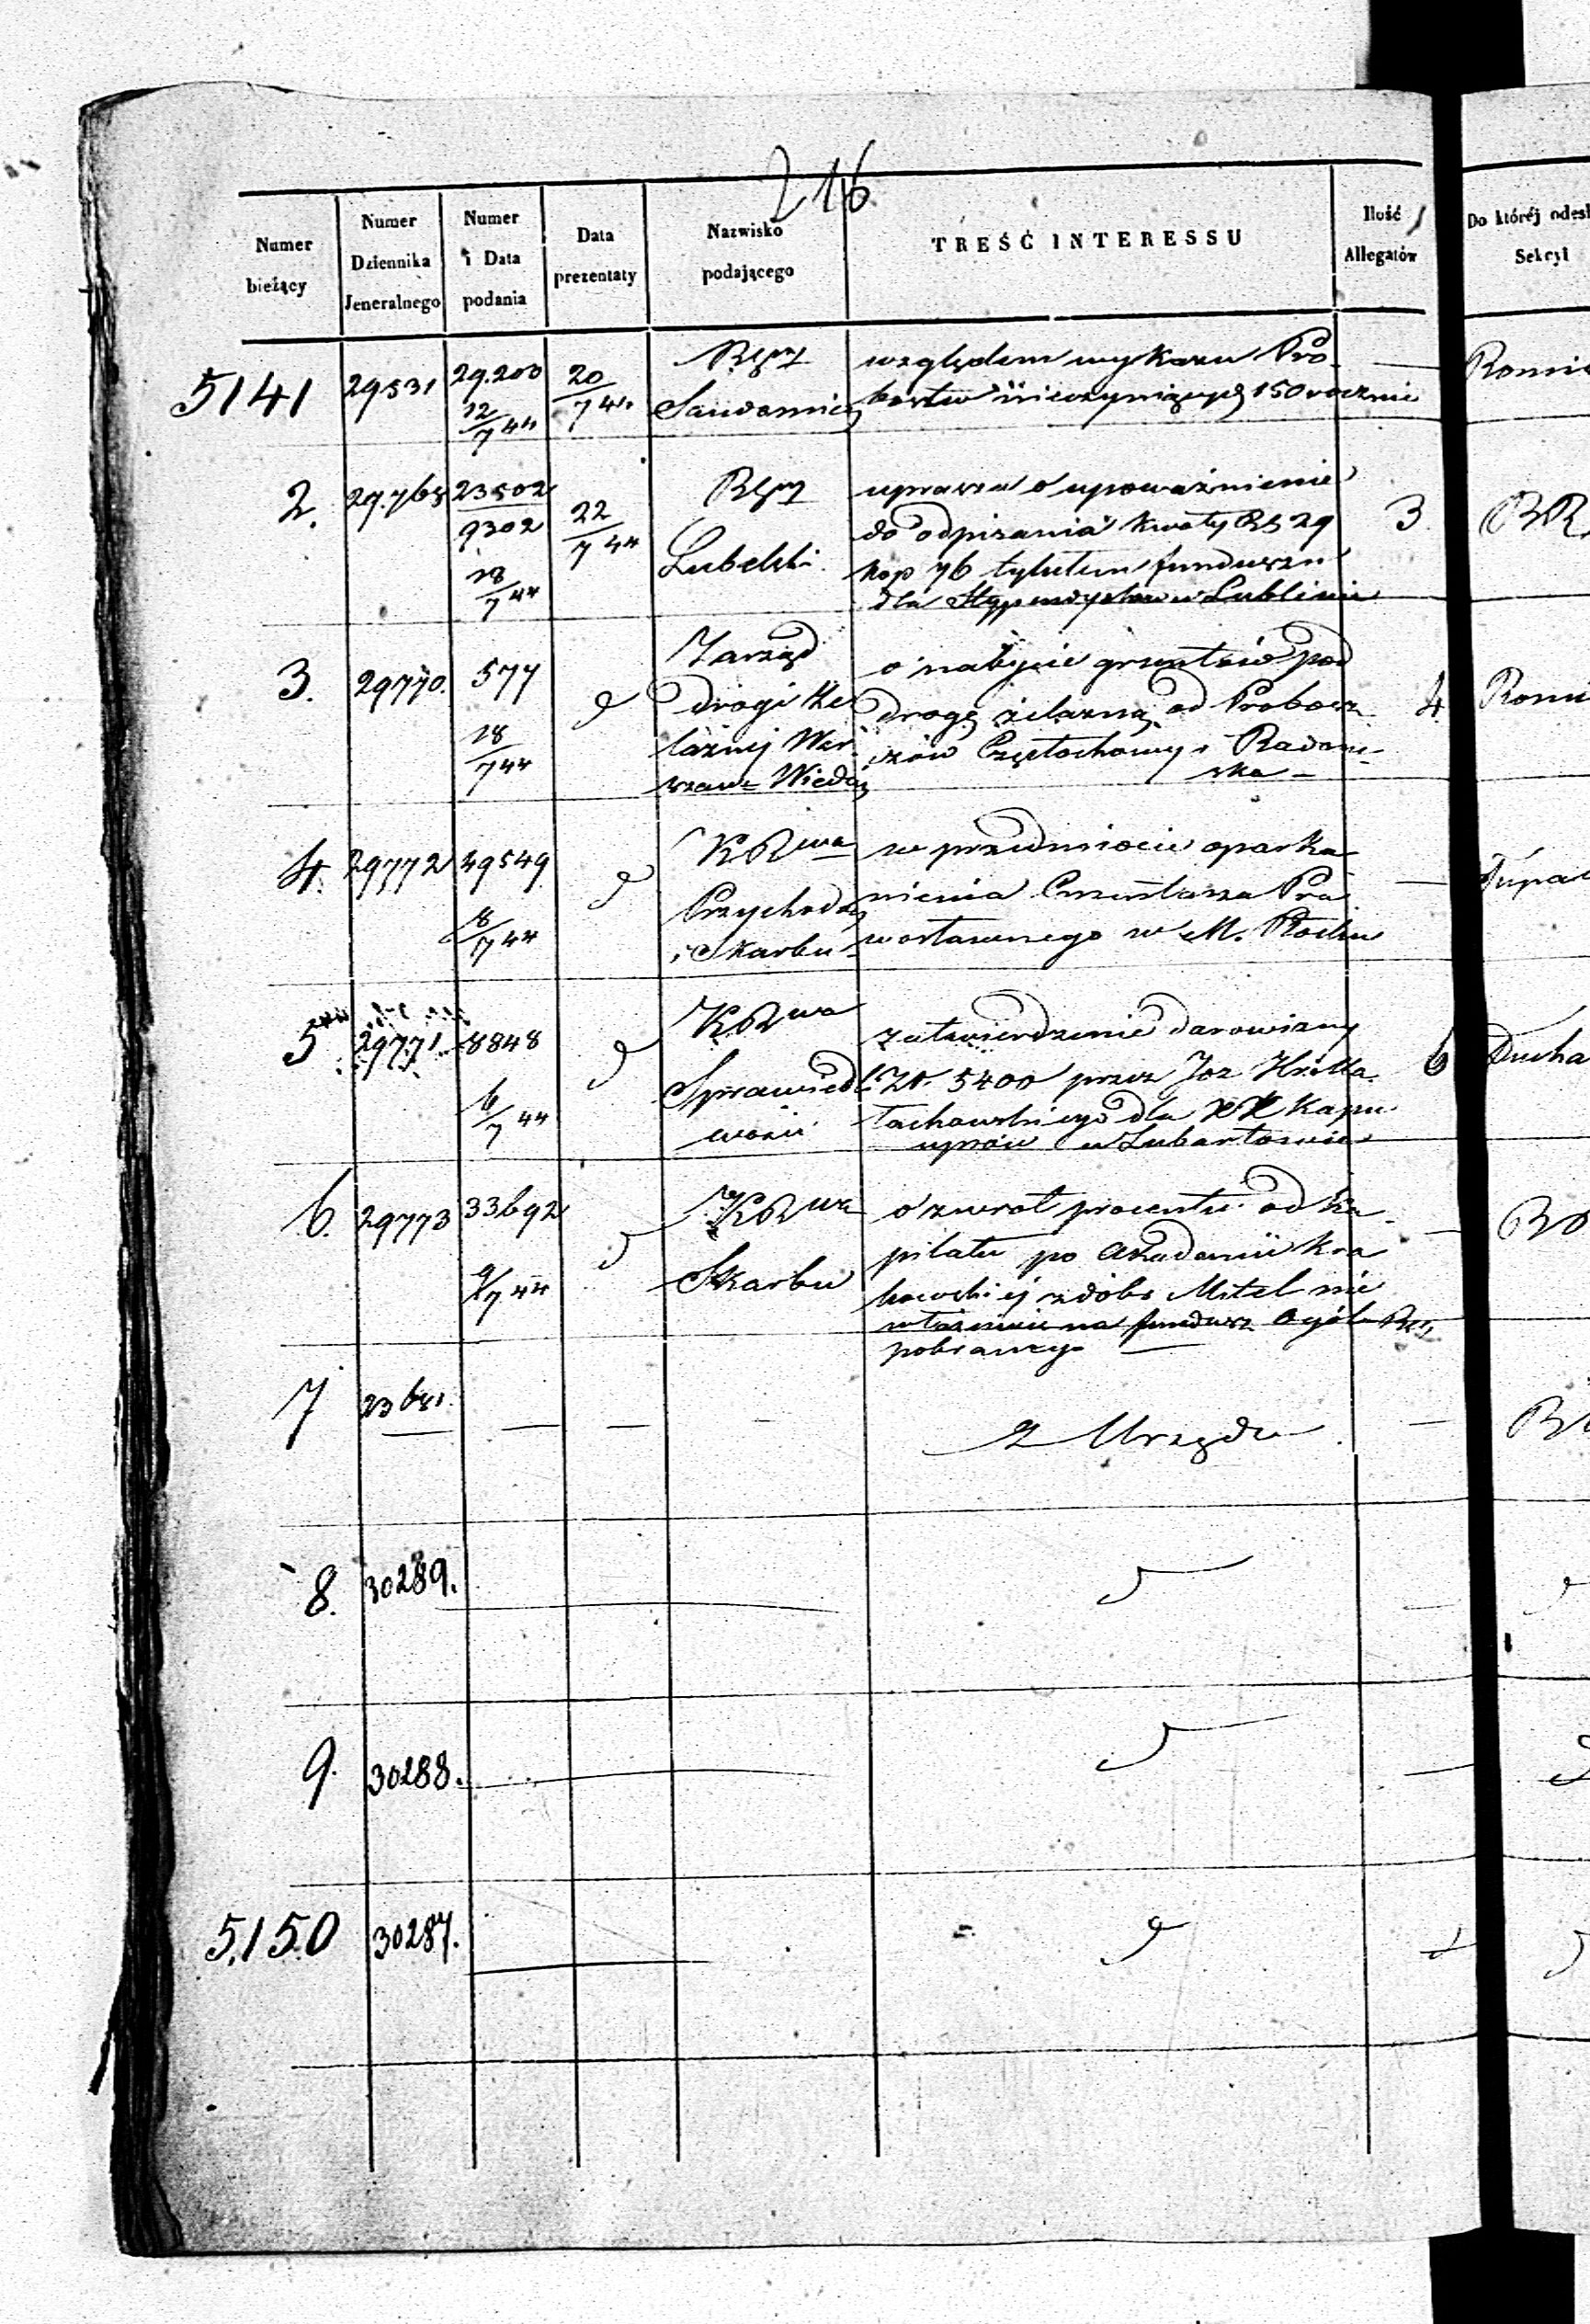 216
Numer bieżący
Numer Dziennika Jeneralnego
Numer i Data podania
Data prezentaty
Nazwisko podającego
TREŚĆ INTERESSU
Ilość Allegatów
Do któréj odesł
Sekcyi
5141 29531 29.203 12/7 44 20/7 44
Sandomier
względem wykazu Pro
bostw nieczyniących 150 rocznie
2. 23502 9302 18/7 44 22/7 44
Lubelski
uprasza o upoważnienie
do odpisania kwoty RS 29
kop 76 tytułem funduszu
dla w Lublinie
3
3. 29770. 577 18/7 44
Zarząd
drogi Że
laznej War
szaw Wied
o nabycie gruntów pod
drogę żelazną od Probosz
czów Częstochowy i Radom
ska
4
4. 29772 49549 8/7 44
KRwa
Przychodów
i Skarbu
w przedmiocie oparka
nienia Cmentarza Pra
wosławnego w M. Płocku
5 29771 8848 6/7 44
KRwa
Sprawiedl
wości
zatwierdzenie darowizny
Zł. 5400 przez Joz
dla XX Kapu
cynów w Lubartowie
6 Ducha
6. 29773 33692 9/7 44
KRwa
Skarbu
o zwrot procentu od Ka
pitału po Akademii Kra
kowskiej z dóbr nie
właściwie na fundusz Ogóln
pobranego
7
z Urzędu
8. 30289.
9. 30288.
5150 30287.